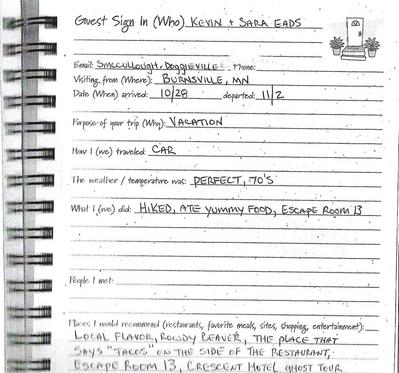 Guest Sign In (Who) KEVIN + SARA EADS
Email: Phone:
Visiting from (Where): BURNSVILLE, MN
Date (When) arrived: 10/28 departed: 11/2
Purpose of your trip (Why): VACATION
How I (we) traveled: CAR
The weather / temperature was: PERFECT, 70'S
What I (we) did: HIKED, ATE YUMMY FOOD, ESCAPE ROOM 13
People I met:
Places I would recommend (restaurants, favorite meals, sites, shopping, entertainment):
LOCAL FLAVOR, ROWDY BEAVER, THE PLACE THAT
SAYS "TACOS" ON THE SIDE OF THE RESTAURANT,
ESCAPE ROOM 13, CRESCENT HOTEL GHOST TOUR